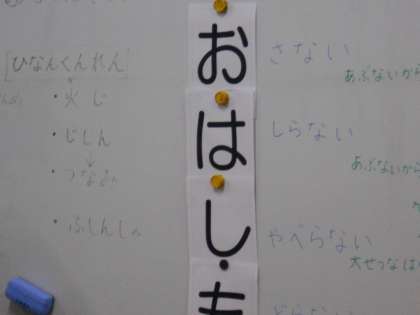 [ひなんくんれん]
・火じ
・じしん
↓
つなみ
・ふしんしゃ
お
さない
あぶないから
は
しらない
あぶないから
し
ゃべらない
大せつなは
も
どらない